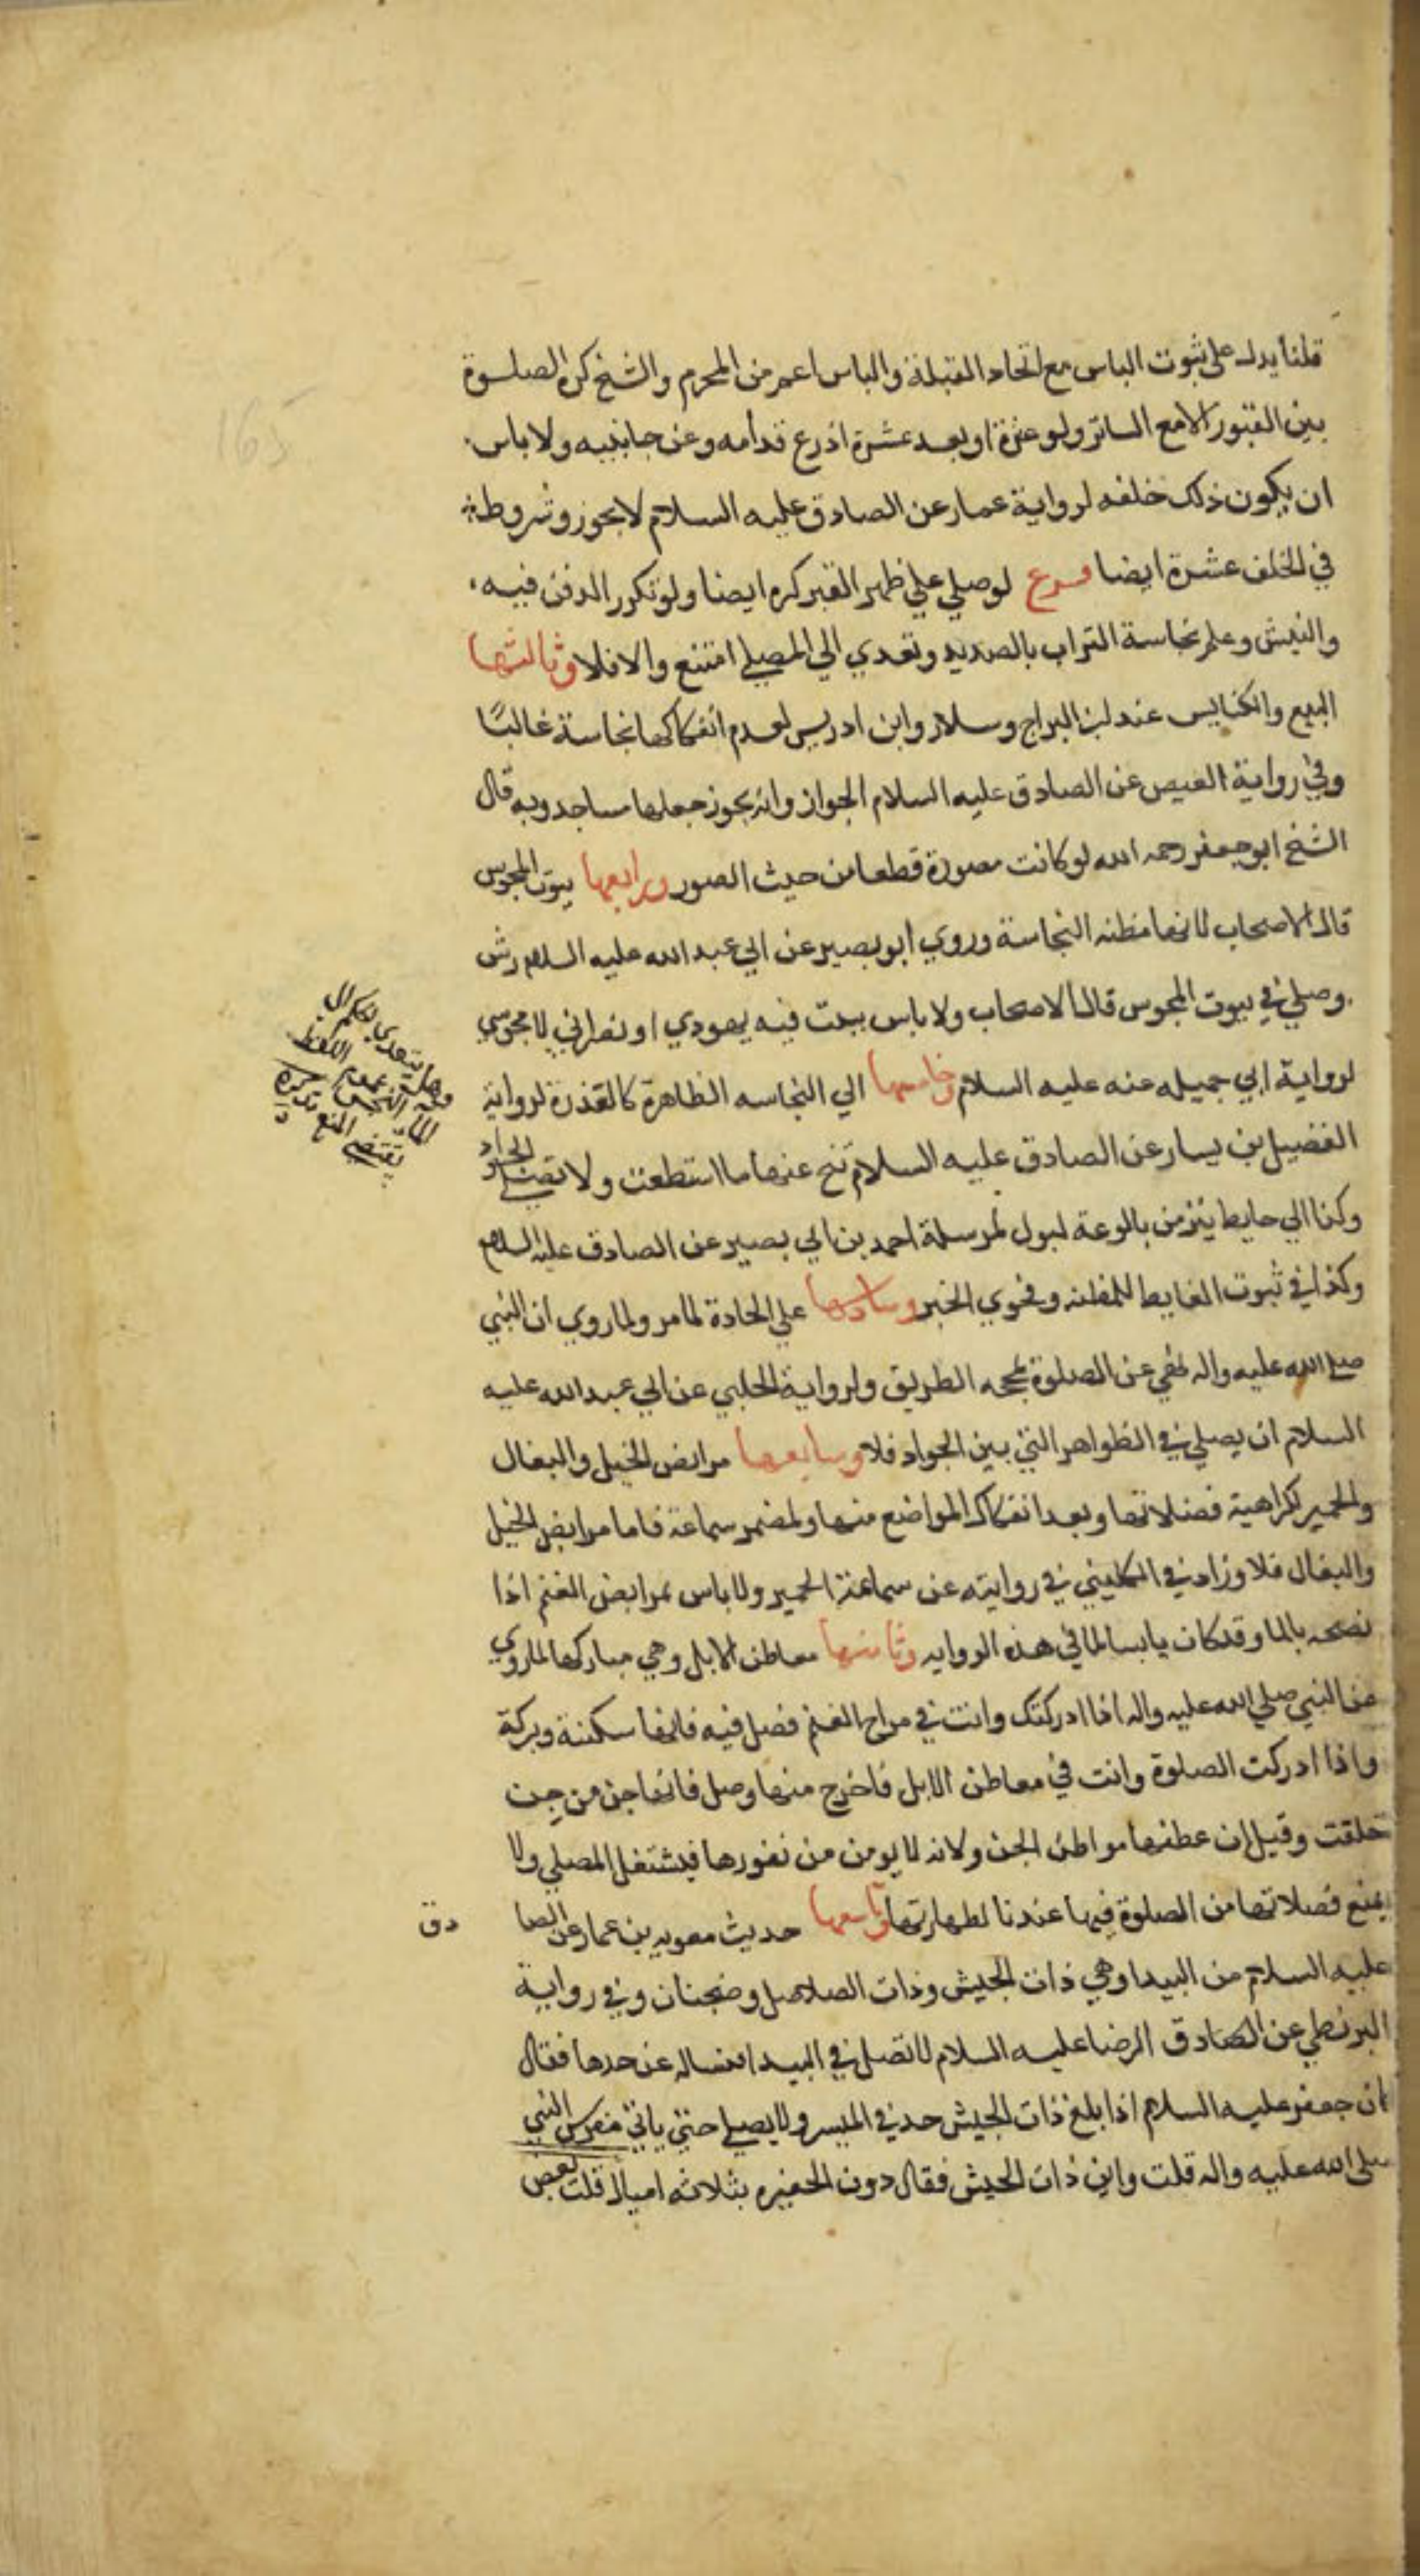 قلنا يدل على ثبوت الباس مع اتحاد القبلة والباس اعم من المحرم والشيخ كره الصلوة
بين القبور الا مع الساتر ولو عنزة او بعد عشرة اذرع قدامه وعن جانبيه ولا باس
ان يكون ذلك خلفه لرواية عمار عن الصادق عليه السلام لا يجوز وشروطه
في الخلف عشرة ايضا فرع لو صلي علي ظهر القبر كره ايضا ولو تكرر الدفن فيه
والنبش وعلم نجاسة التراب بالصديد وتعدي الي المصلي امتنع والا فلا وثالثها
البيع والكنايس عند ابن البراج وسلار وابن ادريس لعدم انفكاكها نجاسة غالبًا
وفي رواية العيص عن الصادق عليه السلام الجواز وانه يجوز جعلها مساجد وبه قال
الشيخ ابو جعفر رحمه الله لو كانت مصورة قطعا من حيث الصور ورابعها بيوت المجوس
قال الاصحاب لانها مظنه النجاسة وروي ابو بصير عن ابي عبد الله عليه السلام رش
وصلي في بيوت المجوس قال الاصحاب ولا باس ببيت فيه يهودي او نصراني لا مجوسي
لرواية ابي جميله عنه عليه السلام وخامسها الي النجاسه الظاهرة كالقذرة لرواية
الفضيل بن يسار عن الصادق عليه السلام تنح عنها ما استطعت ولا تصلي الجواد
وكذا الي حايط ينز من بالوعة لبول لمرسلة احمد بن ابي بصير عن الصادق عليه السلام
وكذا في ثبوت الغايط للمظنه وفحوي الخبر وسادسها علي الجادة لما مر ولما روي ان النبي
صلي الله عليه واله نهي عن الصلوة بمحجه الطريق ولرواية الحلبي عن ابي عبد الله عليه
السلام ان يصلي في الظواهر التي بين الجواد فلا وسابعها مرابض الخيل والبغال
والحمير لكراهية فضلاتها وبعد انفكاك المواضع منها ولمضمر سماعة فاما مرابض الخيل
والبغال فلا وزاد في الكليني في روايته عن سماعة الحمير ولا باس بمرابض الغنم اذا
نضحه بالما وقد كان يابسا لما في هذه الروايه وثامنها معاطن الابل وهي مباركها لما روي
عن النبي صلي الله عليه واله اذا ادركتك وانت في مراح الغنم فصل فيه فانها سكينة وبركة
واذا ادركت الصلوة وانت في معاطن الابل فاخرج منها وصل فانها جن من جن
خلقت وقيل ان عطنها مواطن الجن ولانه لا يومن من نفورها فيشتغل المصلي ولا
يمنع فضلاتها من الصلوة فيها عندنا لطهارتها وتاسعها حديث معويه بن عمار عن الصا دق
عليه السلام من البيدا وهي ذات الجيش وذات الصلاصل وضجنان وفي رواية
البزنطي عن الصادق الرضا عليه السلام لا تصل في البيدا فساله عن حدها فقال
كان جعفر عليه السلام اذا بلغ ذات الجيش جد في المسير ولا يصلي حتي ياتي معرس النبي
صلى الله عليه واله قلت واين ذات الجيش فقال دون الحفيره بثلاثه اميال قلت بعض
وهل يتعدي الحكم الي
يقتضي المنع تذكرة
165